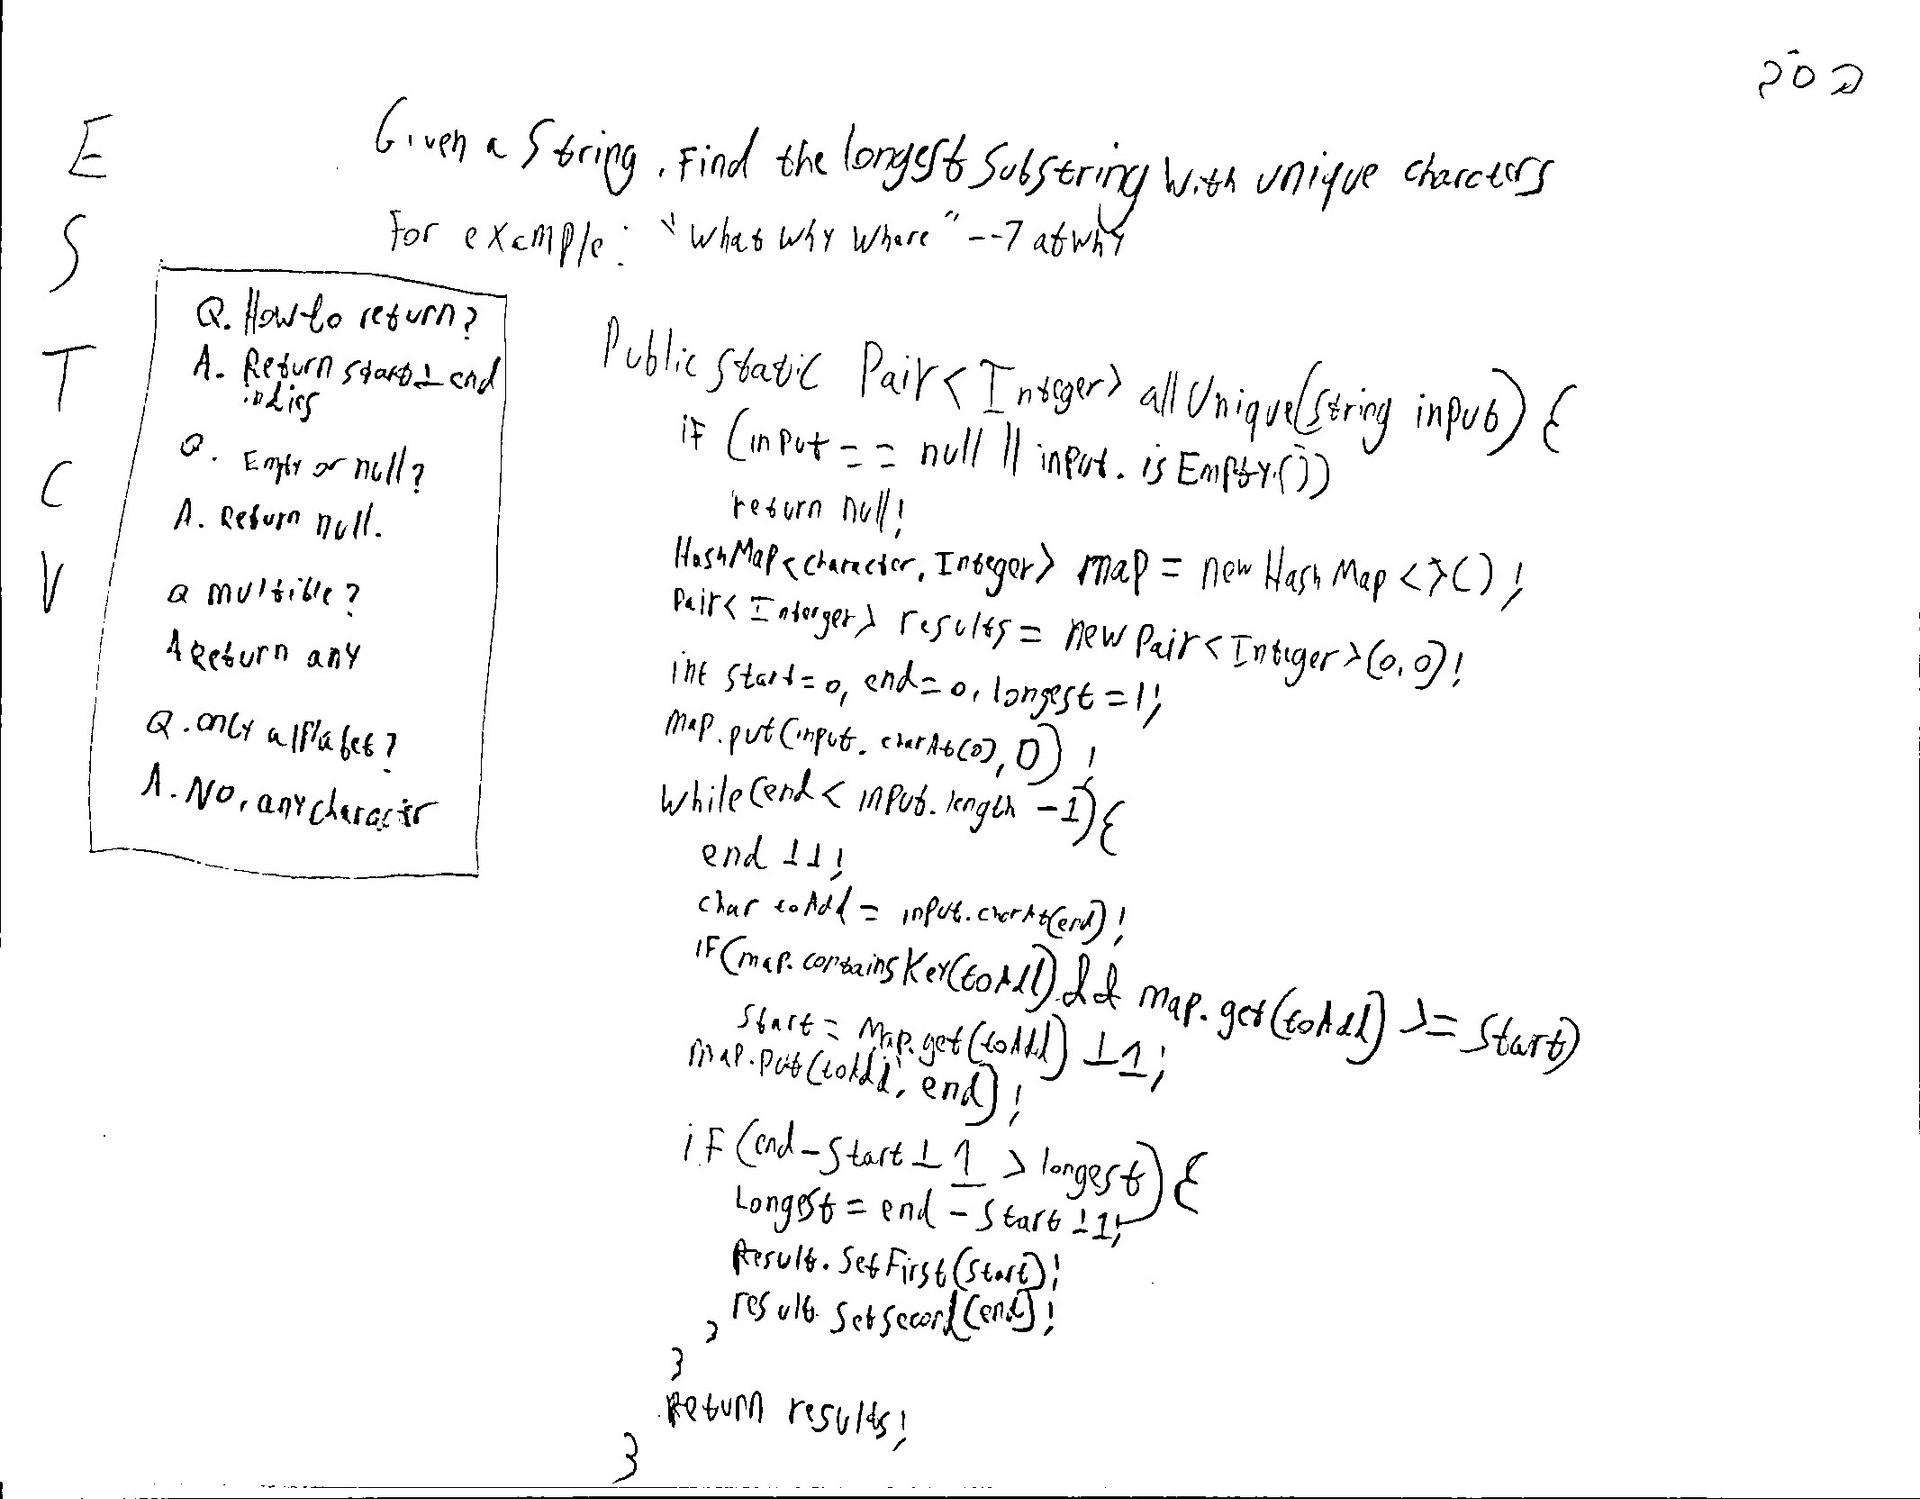 202
E
S
T
C
V
Given a String, Find the longest Substring with unique charcters
For example: "what why where" --7 atwhy
Q. How to return?
A. Return start + end
indies
Q. Empty or null?
A. Return null.
Q multible?
A Return any
Q. only alplabet?
A. No, any character
Public static Pair<Integer> allUnique(String input) {
if (input == null || input.isEmpty())
return null;
HashMap<character, Integer> map = new HashMap<>();
Pair<Interger> results = new Pair<Integer>(0,0);
int start=0, end=0, longest=1;
map.put(input.charAt(0), 0);
while(end < input.length -1){
end ++;
char toAdd = input.charAt(end);
if(map.containsKey(toAdd) && map.get(toAdd) >= start)
start = map.get(toAdd) +1;
map.put(toAdd, end);
if (end-start+1 > longest) {
Longest = end - start +1;
Result.SetFirst(start);
result.setsecond(end);
}
}
Return results;
}